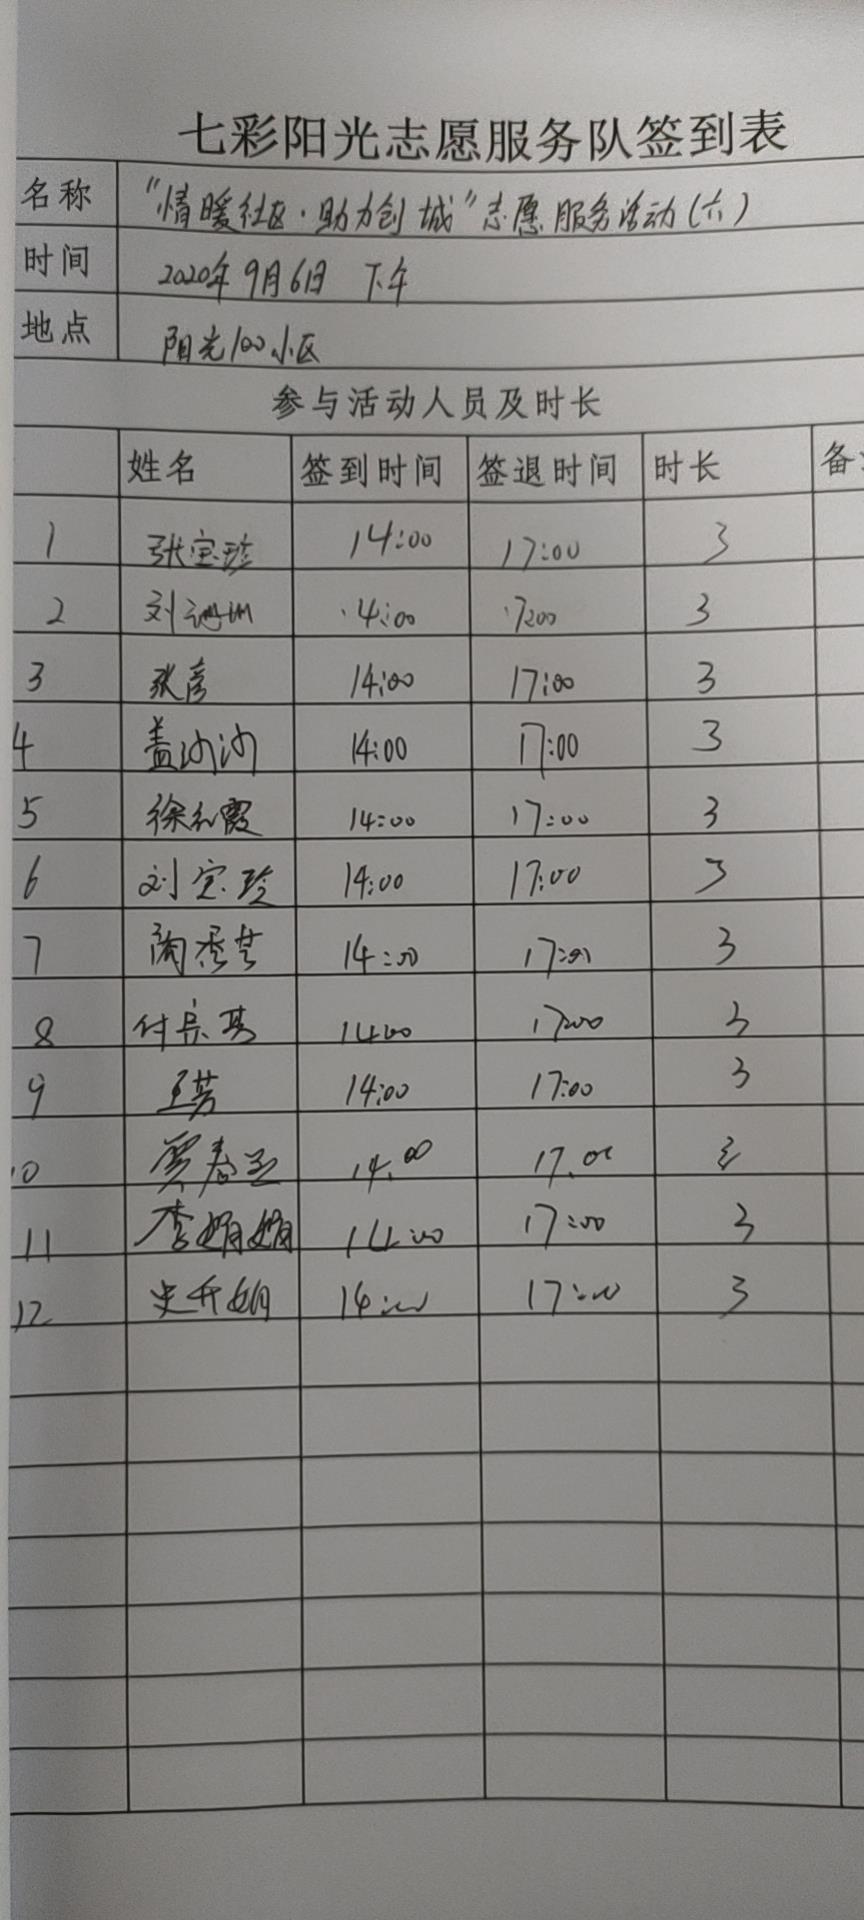 七彩阳光志愿服务队签到表
名称 "情暖社区·助力创城"志愿服务活动(六)
时间 2020年9月6日 下午
地点 阳光100小区
参与活动人员及时长
姓名 签到时间 签退时间 时长 备
1 张宝珍 14:00 17:00 3
2 刘 14:00 17:00 3
3 张彦 14:00 17:00 3
4 盖沙沙 14:00 17:00 3
5 徐红霞 14:00 17:00 3
6 刘宝玲 14:00 17:00 3
7 陶 14:00 17:00 3
8 付 14:00 17:00 3
9 王芳 14:00 17:00 3
10 贾春 14:00 17:00 3
11 李娟娟 14:00 17:00 3
12 史 娟 14:00 17:00 3